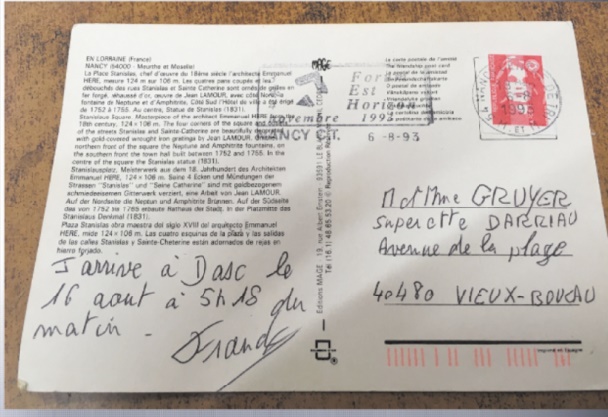 EN LORRAINE (France)
NANCY (54000 - Meurthe et Moselle)
La Place Stanislas, chef d'œuvre du 18ème siècle l'architecte Emmanuel
HERE, mesure 124 m sur 106 m. Les quatres pans coupés et les
débouchés des rues Stanislas et Sainte Catherine sont ornés de grilles en
fer forgé,
fontaine de Neptune et d'Amphitrite, Côté Sud l'Hôtel de ville a été érigé
de 1752 à 1755. Au centre, Statue de Stanislas (1831).
Stanislaus Square. Masterpiece of the architect Emmanuel HERE from the
18th century, 124 × 106 m. The four corners of the square and
of the streets Stanislas and Sainte-Catherine are beautifully
with gold-covered wrought iron gratings by Jean LAMOUR.
northern front of the square the Neptune and Amphitrite fountains, on
the southern front the town hall built between 1752 and 1755. In the
centre of the square the Stanislas statue (1831).
Stanislausplatz, Meisterwerk aus dem 18. Jahrhundert des Architekten
Emmanuel HERE, 124 × 106 m. Seine 4 Ecken und Mündungen der
Strassen "Stanislas" und "Seine Catherine" sind mit goldbezogenem
schmiedeeisernen Gitterwerk verziert, eine Arbeit von Jean LAMOUR.
Auf der Nordseite die Neptun und Amphitrite Brünnen. Auf der Südseite
das von 1752 bis 1755 erbaute Rathaus der Stadt. In der Platzmitte das
Stanislaus Denkmal (1831).
Plaza Stanislas obra maestra del siglo XVIII del arquitecto Emmanuel
HERE, mide 124 × 106 m. Las cuatro esquinas de la plaza y las salidas
de las calles Stanislas y Sainte-Cheterine están adornadas de rejas en
hierro forjado.
J'arrive à Dasc le
16 aout à 5h18 du
matin -
Franck
MAGE
Editions MAGE - 19, rue Albert Einstein - 93591 LE BLANC
Tél. (16.1) 48.65.53.20 © Reproduction
La carte postale de l'amitié
The friendship post-card
La postal de la amistad
Fort
Est
Horizon
Septembre 1993
NANCY CIT. 6 -8-93
Madame GRUYER
Superette DARRIAU
Avenue de la plage
40480 VIEUX-BOUCAU